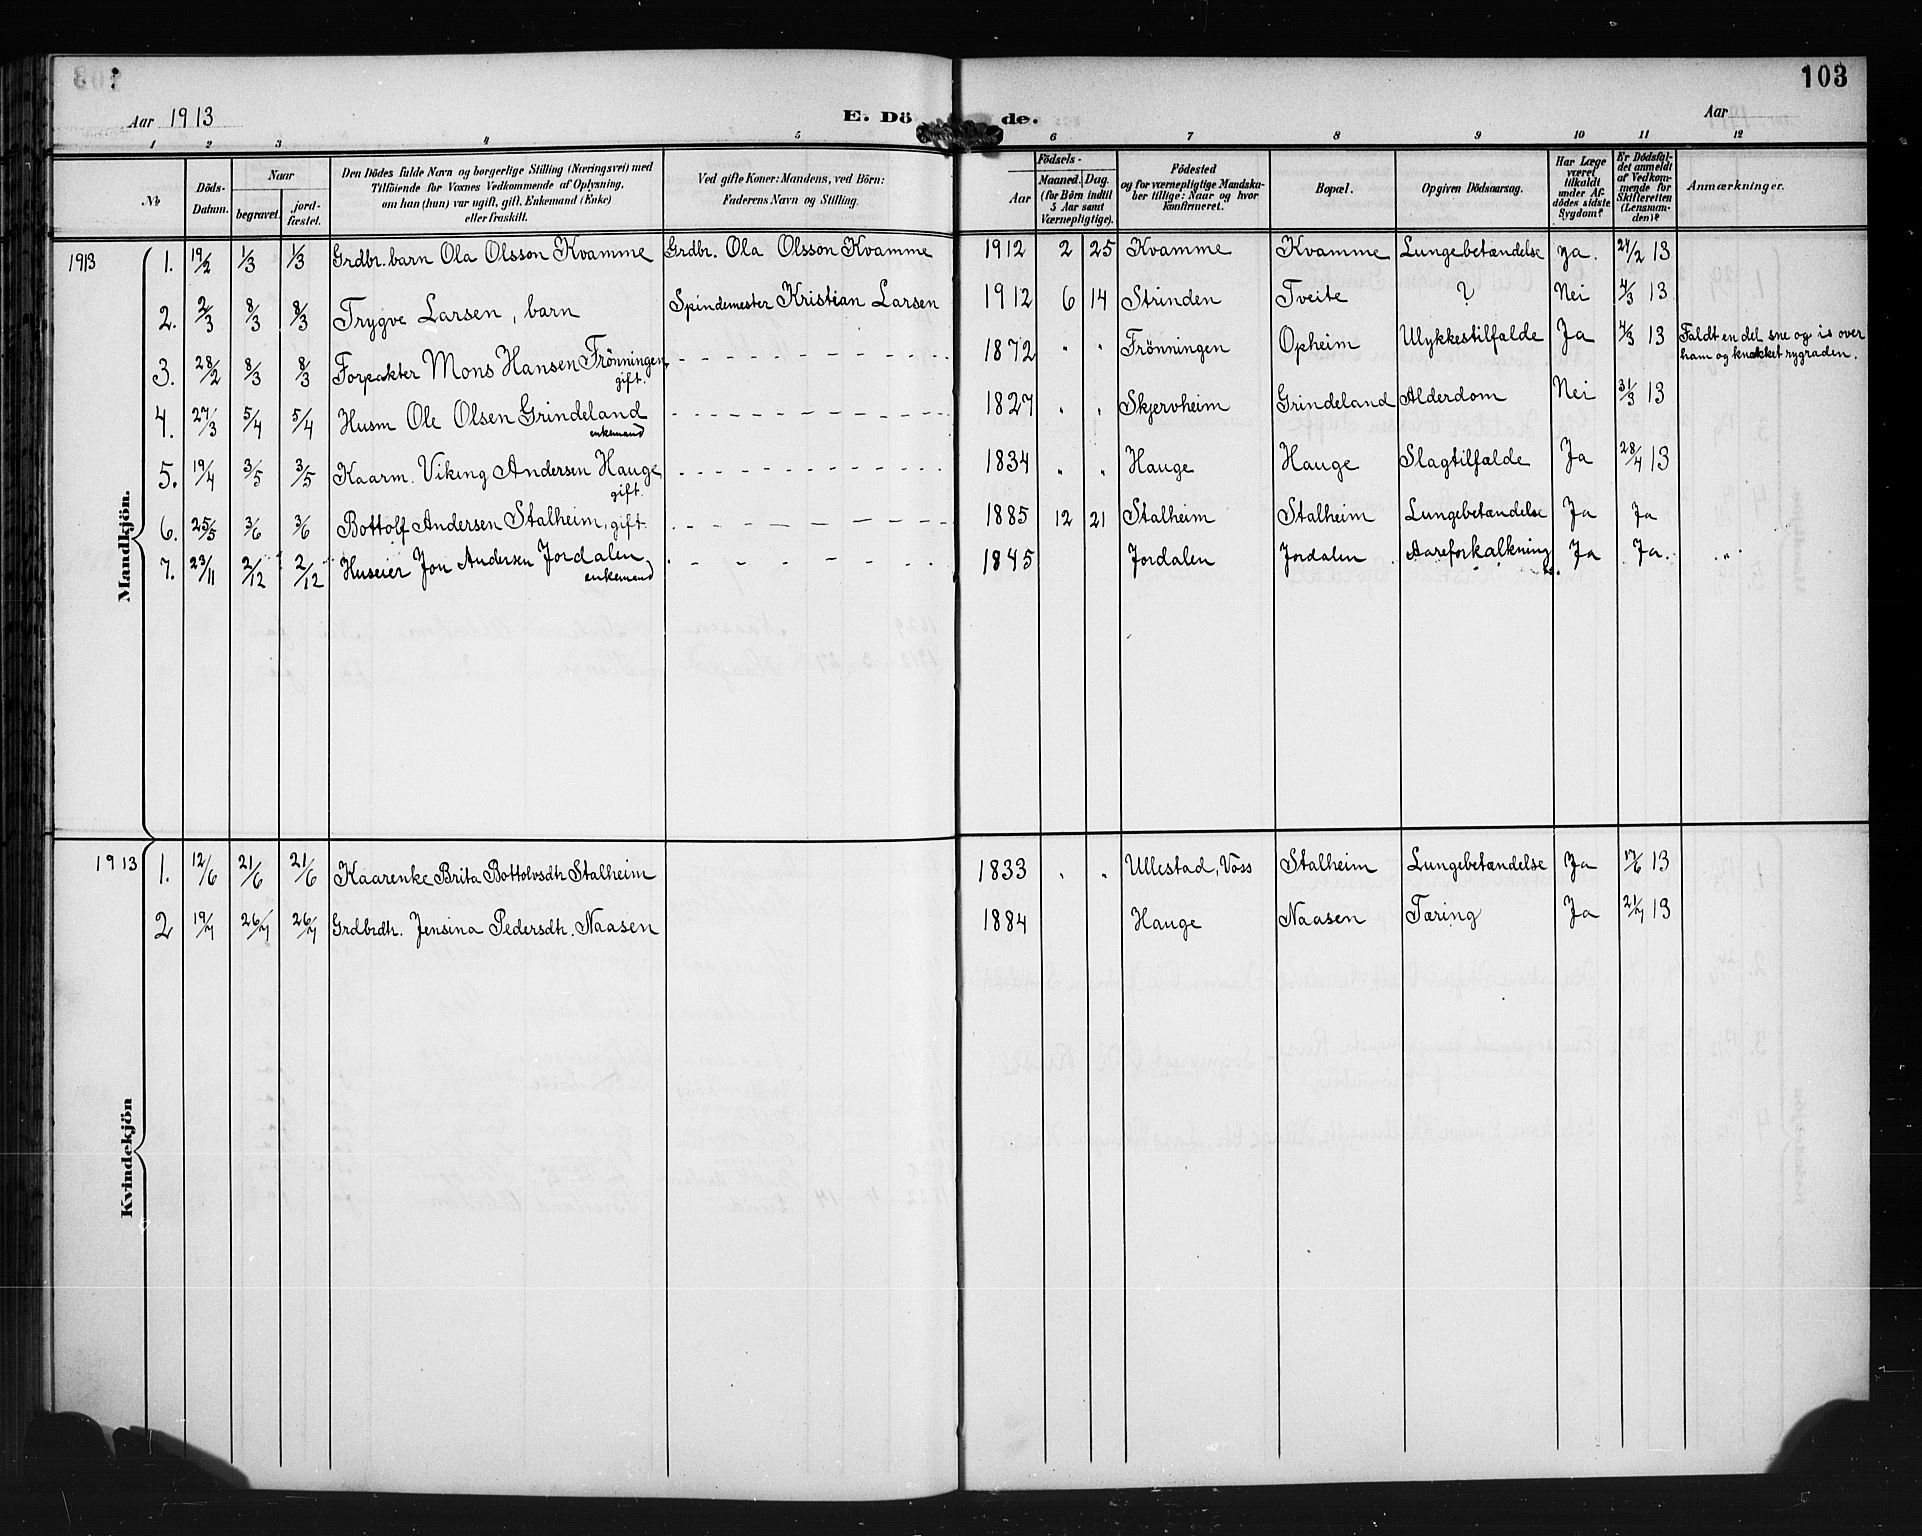 103
Aar 1913 E. Dö de. Aar
1 2 3 4 5 6 7 8 9 10 11 12
No
Döds-Datum.
Naar
begravet. jord-fæstet.
Den Dödes fulde Navn og borgerlige Stilling (Næringsvei) med
Tilföiende for Voxnes Vedkommende af Oplysning,
om han (hun) var ugift, gift, Enkemand (Enke)
eller fraskilt.
Ved gifte Koner: Mandens, ved Börn:
Faderens Navn og Stilling.
Födsels-
Aar
Maaned. Dag.
(for Börn indtil
5 Aar samt
Værnepligtige).
Födested
og for værnepligtige Mandska-
ber tillige: Naar og hvor
konfirmeret.
Bopæl.
Opgiven Dödsaarsag.
Har Læge
været
tilkaldt
under Af-
dödes sidste
Sygdom?
Er Dödsfal-
det anmeldt
af Vedkom-
mende for
Skifteretten
(Lensman-
den)?
Anmærkninger.
Mandkjön.
1913 1. 19/2 1/3 1/3 Grdbr. barn Ola Olsson Kvamme Grdbr. Ola Olsson Kvamme 1912 2 25 Kvamme Kvamme Lungebetændelse Ja. 24/2 13
2. 2/3 8/3 8/3 Trygve Larsen, barn Spindemester Kristian Larsen 1912 6 14 Strinden Tveite ? Nei 4/3 13
3. 28/2 8/3 8/3 Forpakter Mons Hansen Frönningen, gift. - - - 1872 " " Frönningen Opheim Ulykkestilfalde Ja 4/3 13 Faldt en del sne og is over
ham og knækket rygraden.
4. 27/3 5/4 5/4 Husm Ole Olsen Grindeland enkemand - - - 1827 " " Skjervheim Grindeland Alderdom Nei 31/3 13
5. 19/4 3/5 3/5 Kaarm. Viking Andersen Hauge gift. - - - 1834 " " Hauge Hauge Slagtilfalde Ja 28/4 13
6. 25/5 3/6 3/6 Bottolf Andersen Stalheim, gift - - - 1885 12 21 Stalheim Stalheim Lungebetændelse Ja Ja
7. 23/11 2/12 2/12 Huseier Jon Andersen Jordalen enkemand - - - 1845 Jordalen Jordalen Aareforkalkning Ja Ja. "
Kvindekjön
1913 1. 12/6 21/6 21/6 Kaarenke Brita Bottolvsdtr Stalheim 1833 " " Ullestad, Voss Stalheim Lungebetændelse Ja 17/6 13
2 19/7 26/7 26/7 Grdbrdtr. Jensina Pedersdtr. Naasen 1884 Hauge Naasen Tæring Ja 21/7 13